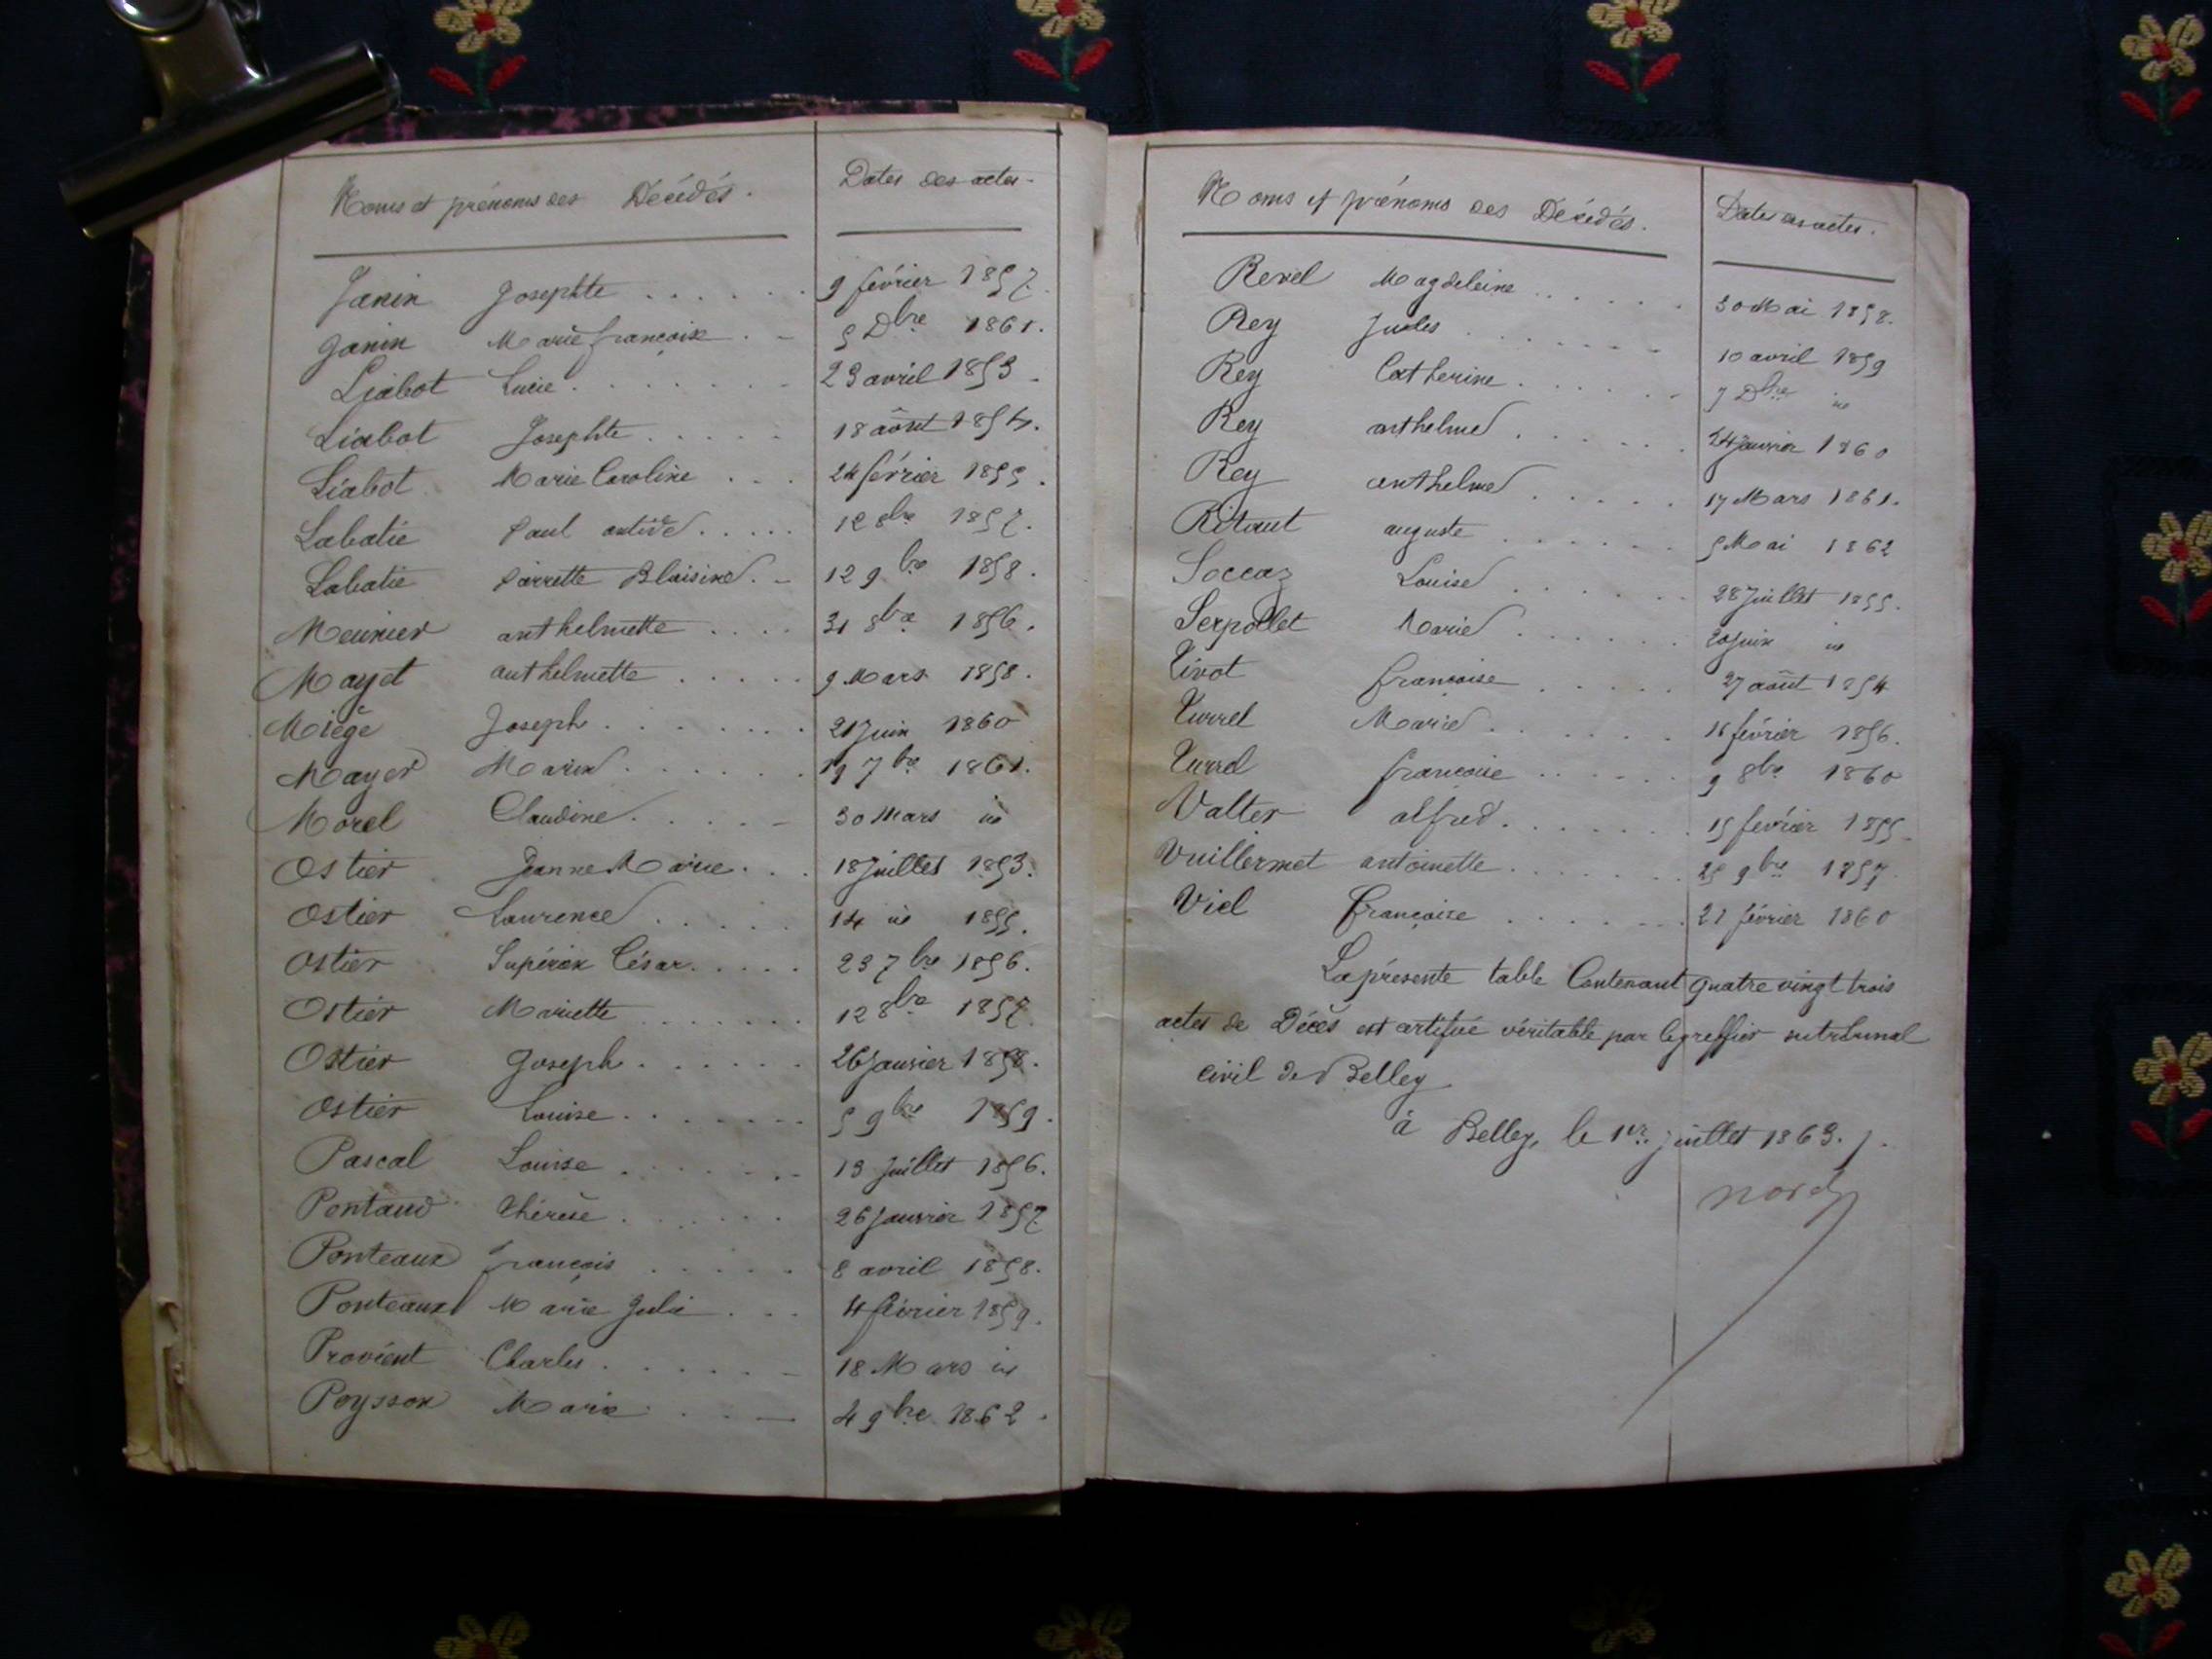 Noms et prénoms des Décédés. Dates des actes.
Janin Josephte 9 février 1857.
Janin Marie françoise 5 Dbre 1861.
Liabot Lucie 23 avril 1853
Liabot Josephte 18 août 1854.
Liabot Marie Caroline 24 février 1855.
Labatie Paul 12 8bre 1857.
Labatie Pierrette Blaisine 12 9bre 1858.
Meunier anthelmette 31 8bre 1856.
Mayet anthelmette 9 Mars 1858.
Miège Joseph 21 Juin 1860
Mayer Marie 19 7bre 1861.
Morel Claudine 30 Mars id
Ostier Jeanne Marie 18 Juillet 1853.
Ostier Laurence 14 id 1855.
Ostier César 23 7bre 1856.
Ostier Mariette 12 8bre 1857
Ostier Joseph 26 Janvier 1858.
Ostier Louise 5 9bre 1859.
Pascal Louise 13 Juillet 1856.
Pontaud Thérèse 26 Janvier 1857
Ponteaux françois 8 avril 1858.
Ponteaux Marie Julie 4 février 1859.
Provient Charles 18 Mars id
Peysson Marie 4 9bre 1862.
Noms et prénoms des Décédés. Dates des actes.
Revel Magdeleine 30 Mai 1858.
Rey Jules 10 avril 1859
Rey Catherine 7 Dbre id
Rey anthelme 24 Janvier 1860
Rey anthelme 17 Mars 1861.
Ritaut auguste 5 Mai 1862
Soccaz Louise 28 Juillet 1855.
Serpollet Marie 20 Juin id
Tivot françoise 27 août 1854
Turrel Marie 16 février 1856.
Turrel françoise 9 8bre 1860
Valter alfred 15 février 1855
Vuillermet antoinette 25 9bre 1857.
Viel françoise 21 février 1860
La présente table Contenant quatre vingt trois
actes de Décès est certifiée véritable par le greffier du tribunal
civil de Belley
à Belley, le 1er. juillet 1863.